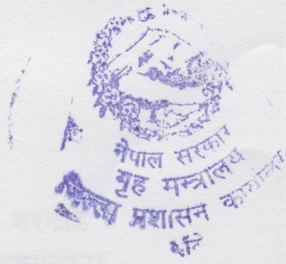 नेपाल सरकार
गृह मन्त्रालय
जिल्ला प्रशासन